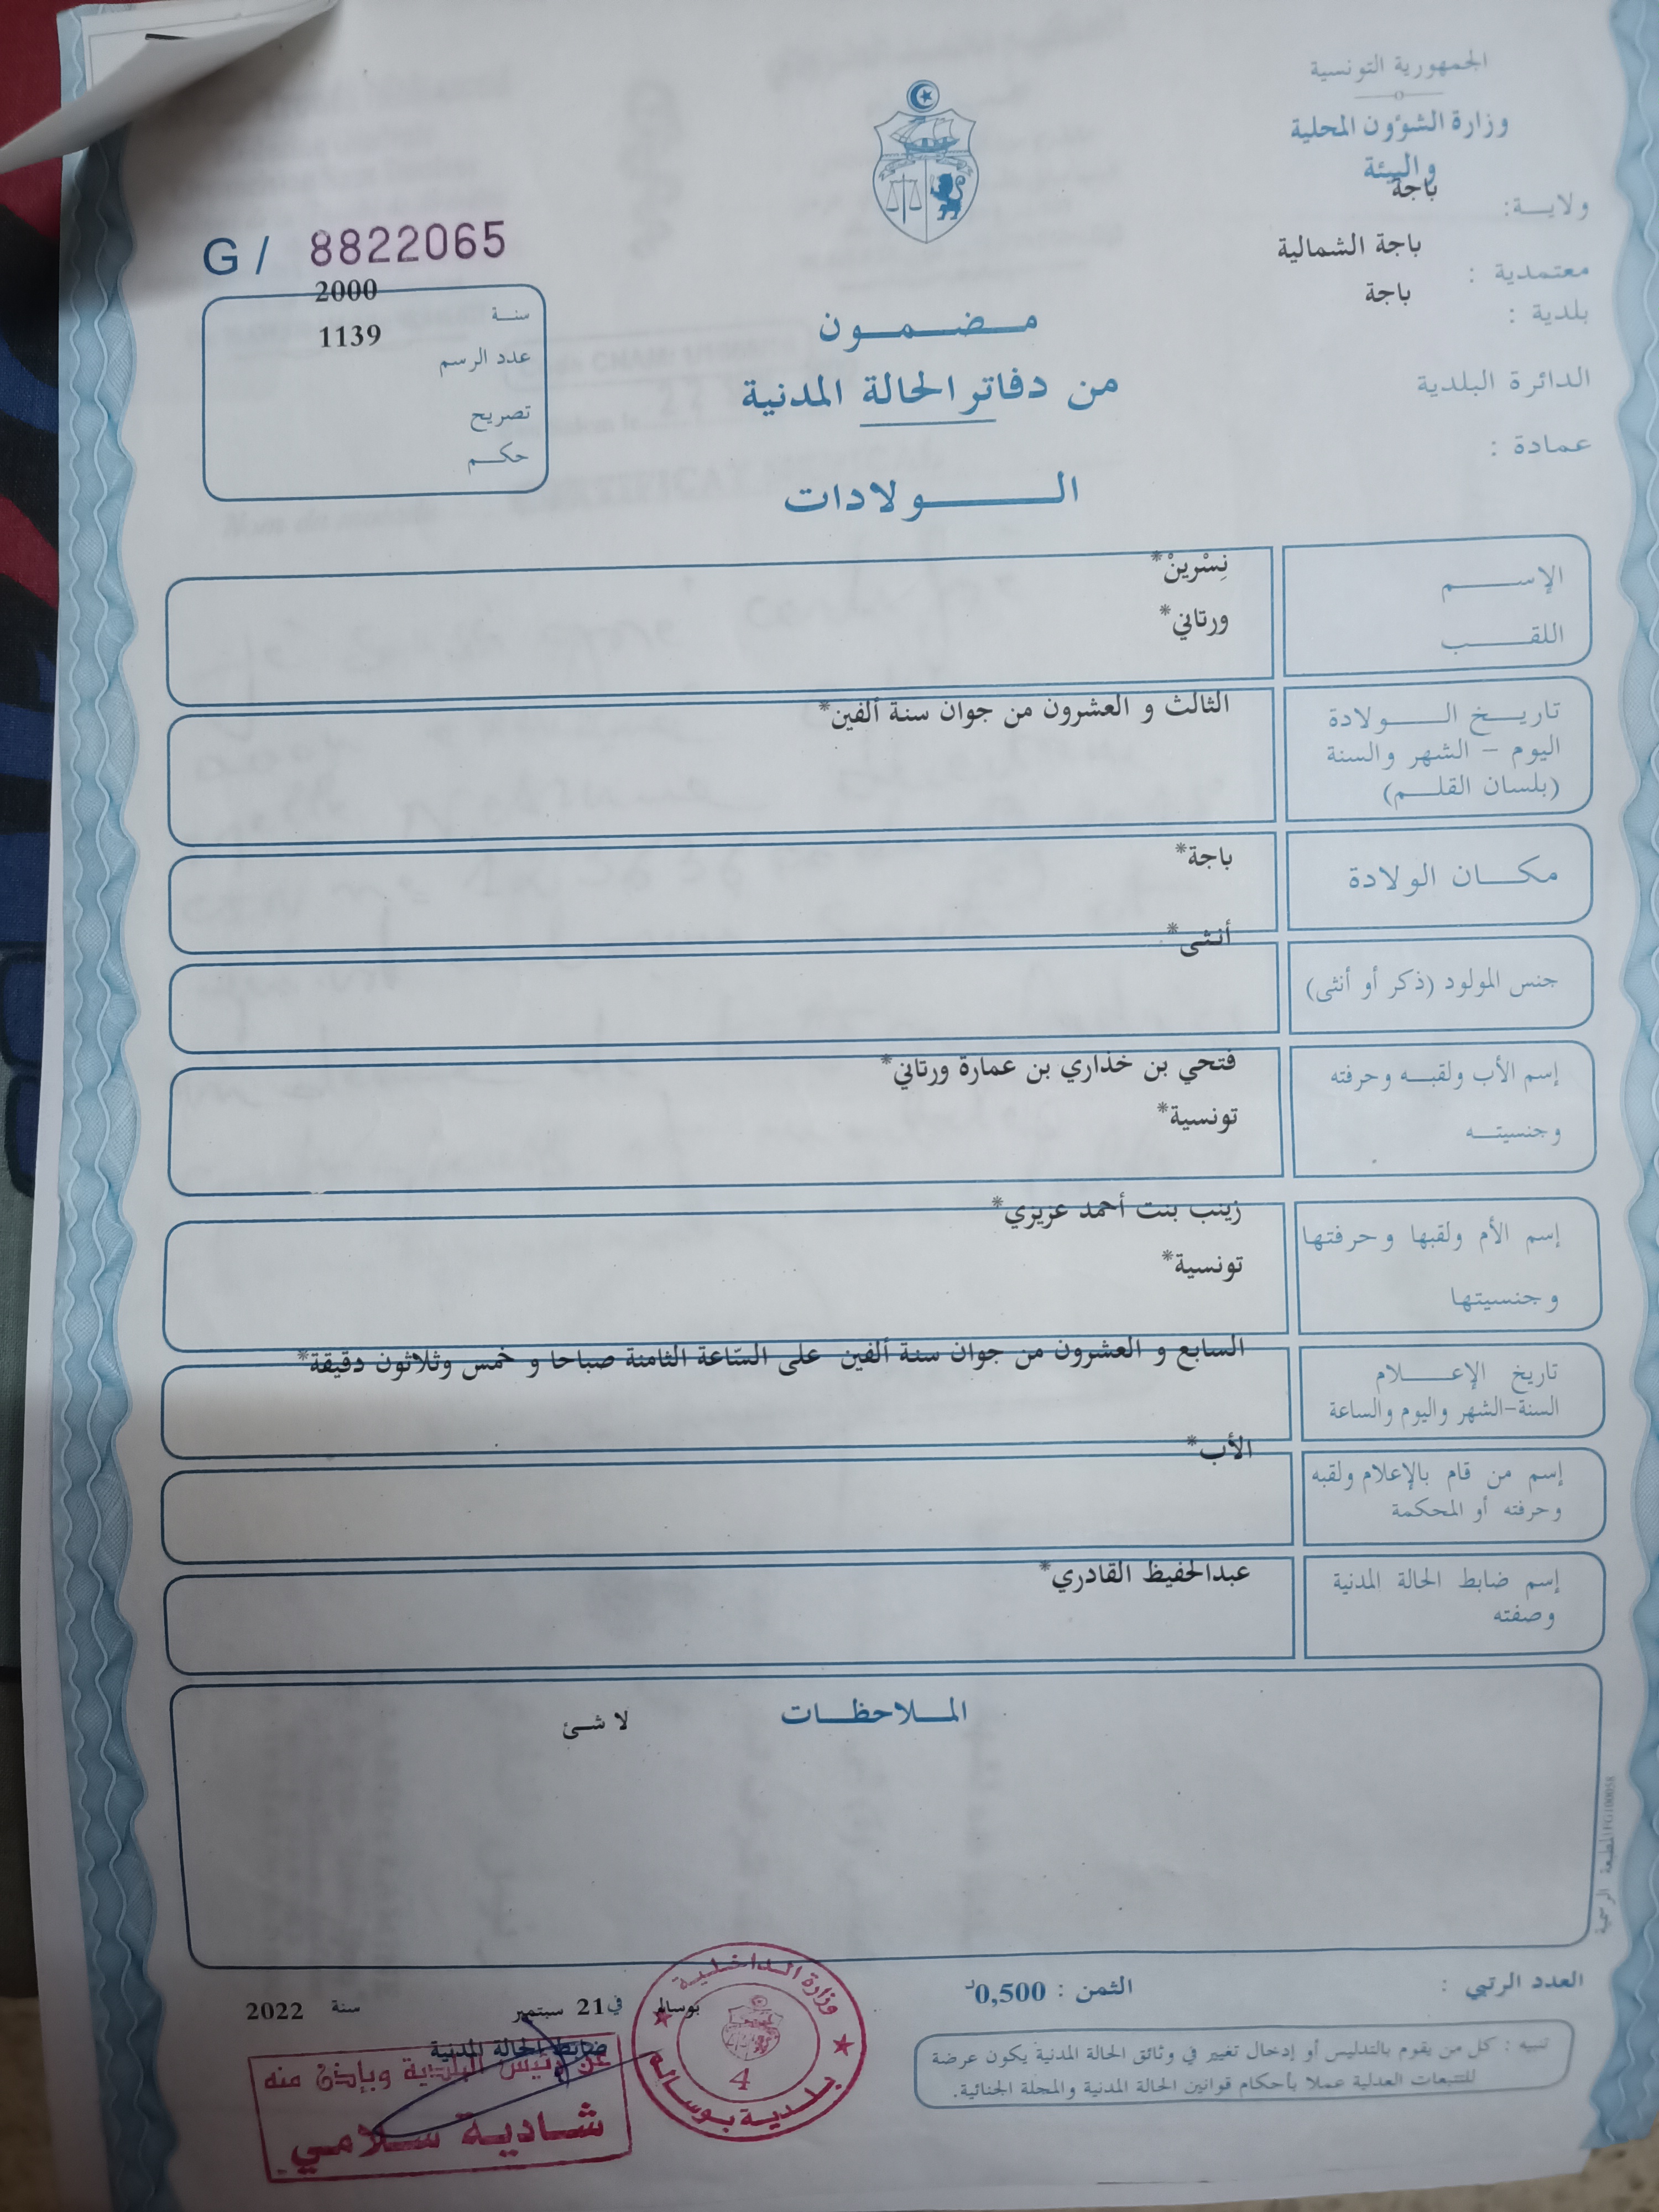 الجمهورية التونسية
وزارة الشؤون المحلية
والبيئة
ولايـــة: باجة
معتمدية : باجة الشمالية
بلدية : باجة
الدائرة البلدية
عمادة :
G / 8822065
سنـــة 2000
عدد الرسم 1139
تصريح
حكـــم
مـــضـــمـــون
من دفاتر الحالة المدنية
الـــــولادات
الإســـــم نِسْرينْ*
اللقـــــب ورتاني*
تاريـــخ الـــــولادة الثالث و العشرون من جوان سنة ألفين*
اليوم – الشهر والسنة
(بلسان القلـــم)
مكـــان الولادة باجة*
جنس المولود (ذكر أو أنثى) أنثى*
إسم الأب ولقبـــه وحرفته فتحي بن خذاري بن عمارة ورتاني*
وجنسيتـــه تونسية*
إسم الأم ولقبها وحرفتها زينب بنت أحمد عزيزي*
وجنسيتها تونسية*
تاريخ الإعـــــلام السابع و العشرون من جوان سنة ألفين على السّاعة الثامنة صباحا و خمس وثلاثون دقيقة*
السنة-الشهر واليوم والساعة
إسم من قام بالإعلام ولقبه الأب*
وحرفته أو المحكمة
إسم ضابط الحالة المدنية عبدالحفيظ القادري*
وصفته
المـــلاحظـــات
لا شئ
المطبعة الرسمية
العدد الرتبي :
الثمن : 0,500د
تنبيه : كل من يقوم بالتدليس أو إدخال تغيير في وثائق الحالة المدنية يكون عرضة
للتتبعات العدلية عملا بأحكام قوانين الحالة المدنية والمجلة الجنائية.
بوسالم في 21 سبتمبر سنة 2022
ضابط الحالة المدنية
عن رئيس البلدية وبإذن منه
شـاديـة سـلامي
وزارة الـداخـلـيـة
بـلـديـة بـوسـالـم
4